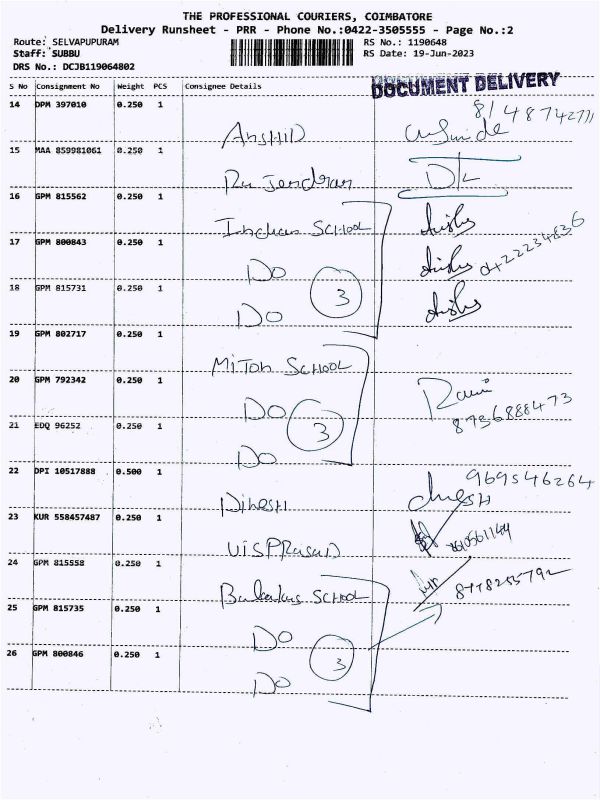 THE PROFESSIONAL COURIERS, COIMBATORE
Delivery Runsheet - PRR - Phone No.:0422-3505555 - Page No.:2
Route: SELVAPUPURAM
RS No.: 1190648
Staff: SUBBU
RS Date: 19-Jun-2023
DRS No.: DCJB119064802
S No Consignment No Weight PCS Consignee Details
DOCUMENT DELIVERY
14 DPM 397010 0.250 1
15 MAA 859981061 0.250 1
Rajendran
16 GPM 815562 0.250 1
Indian SCHOOL
17 GPM 800843 0.250 1
DO
04222234836
18 GPM 815731 0.250 1
DO
3
19 GPM 802717 0.250 1
Miton SCHOOL
20 GPM 792342 0.250 1
DO
8736888473
21 EDQ 96252 0.250 1
DO
3
22 DPI 10517888 0.500 1
Dinesh
969546264
23 KUR 558457487 0.250 1
VISPRASAD
24 GPM 815558 0.250 1
SCHOOL
25 GPM 815735 0.250 1
DO
26 GPM 800846 0.250 1
DO
3